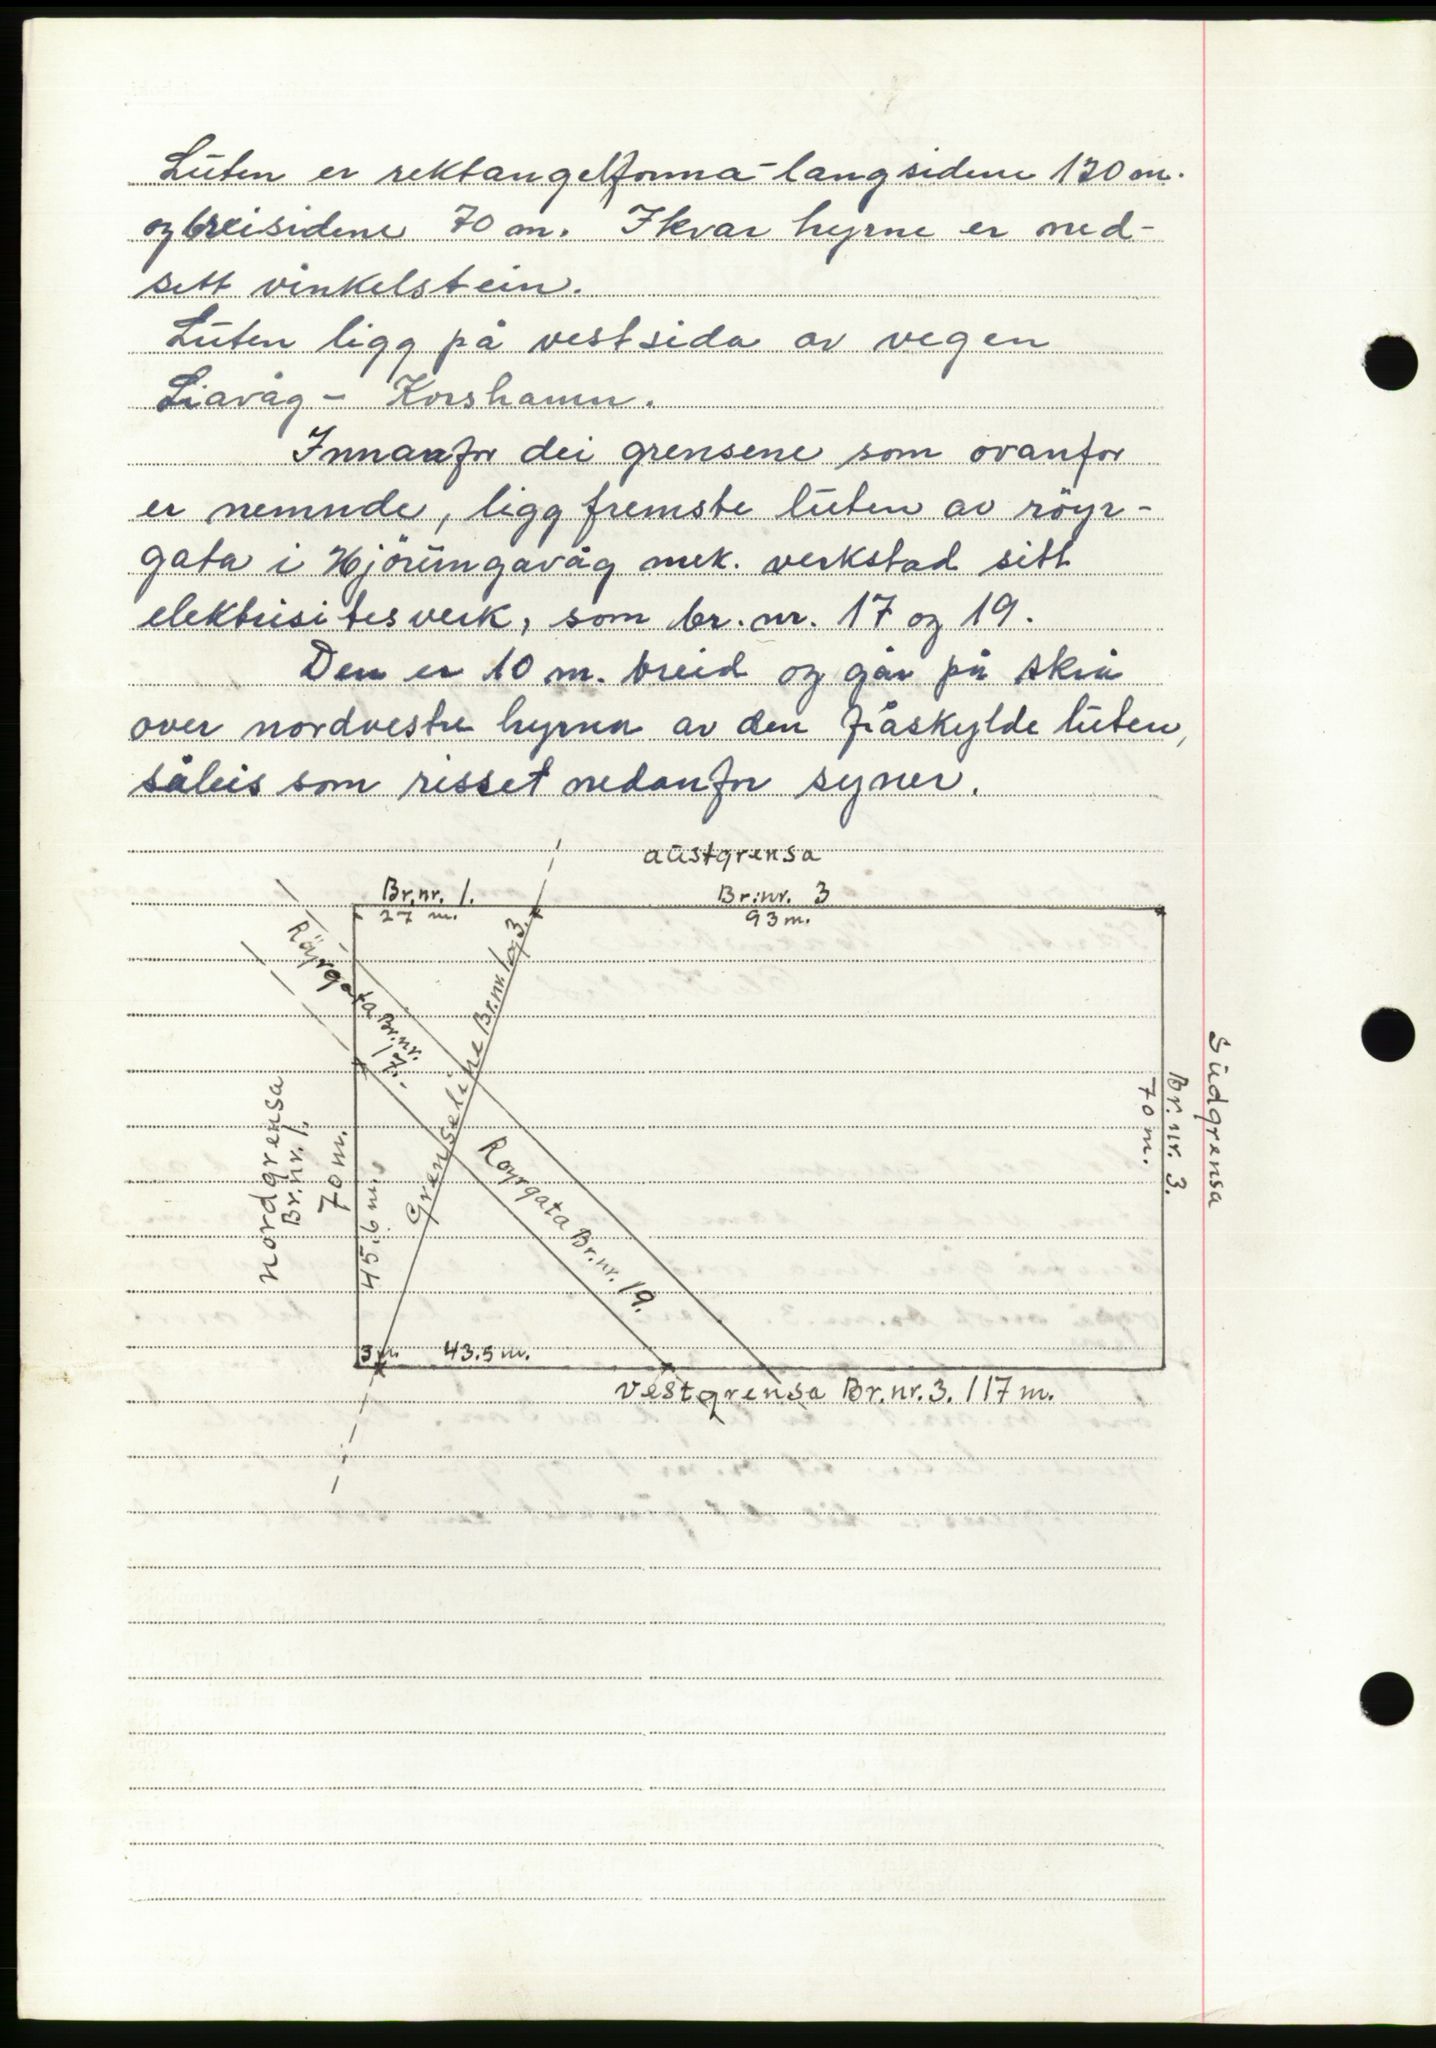 Lŭten er rektangelforma - langsidene 120 m.
og breisidene 70 m. I kvar hyrne er ned-
sett vinkelstein.
Lŭten ligg på vestsida av vegen
Liavåg - Korshamn.
Innanfor dei grensene som ovanfor
er nemnde, ligg fremste lŭten av röyr-
gata i Hjörŭngavåg mek. verkstad sitt
elektrisitesverk, som br. nr. 17 og 19.
Den er 10 m. breid og går på skrå
over nordvestre hyrna av den fråskylde lŭten,
såleis som risset nedanfor syner.
aŭstgrensa
Br.nr. 1. Br.nr. 3
27 m. 93 m.
Röyrgata Br.nr.
17.-
Grenseline Br.nr. 1 og 3.
Röyrgata Br.nr. 19.
nordgrensa
Br.nr. 1.
70 m.
45.6 m.
Sŭdgrensa
Br. nr. 3.
70 m.
3 m. 43.5 m.
vestgrensa Br.nr. 3. 117 m.